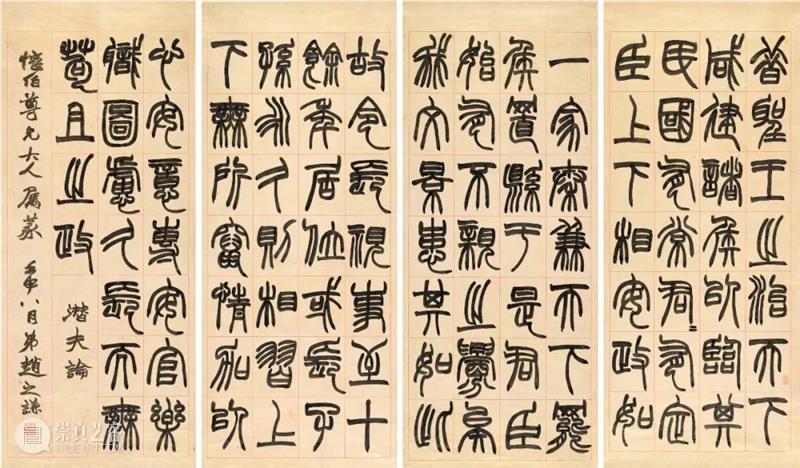 昔聖王之治天下
咸建諸侯以臨其
民國有常君〻有定
臣上下相安政如
一家秦兼天下罷
侯置縣于是君臣
始有不親之釁矣
我文景患其如此
故令長視事至十
餘年居位或長子
孫永久則相習上
下無所竄情加以
心安意專安官樂
職圖慮久長而無
苟且之政
潛夫論
伯尊兄大人屬篆 壬申八月弟趙之謙
崇真艺客